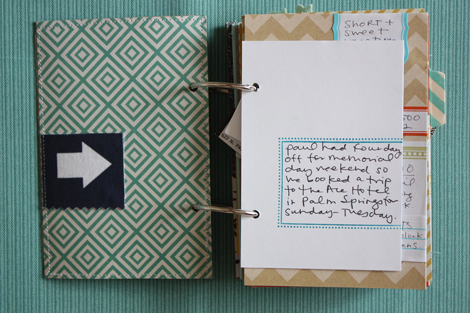 SHORT +
sweet
paul had four day
off for memorial
day weekend so
we booked a trip
to the Ace Hotel
in Palm Springs for
Sunday-Tuesday.
500